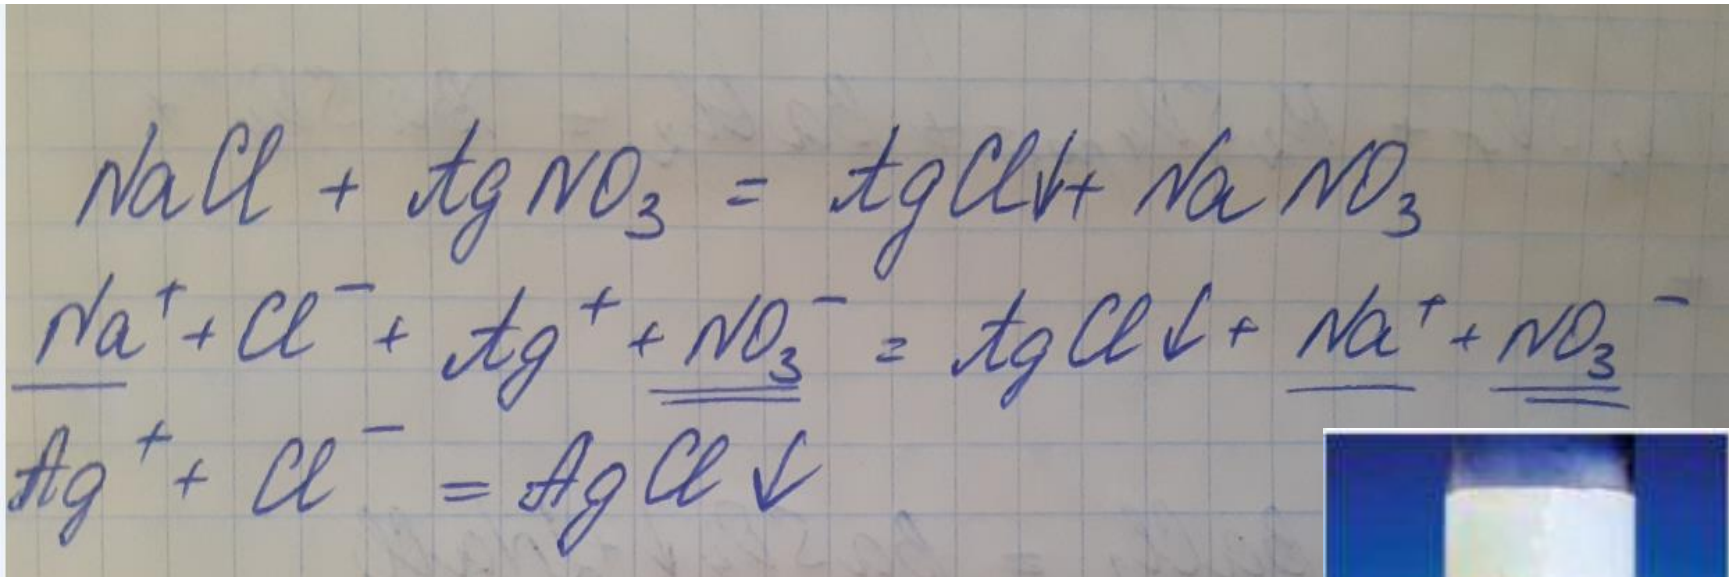 NaCl + AgNO₃ = AgCl↓ + NaNO₃
Na⁺ + Cl⁻ + Ag⁺ + NO₃⁻ = AgCl↓ + Na⁺ + NO₃⁻
Ag⁺ + Cl⁻ = AgCl↓